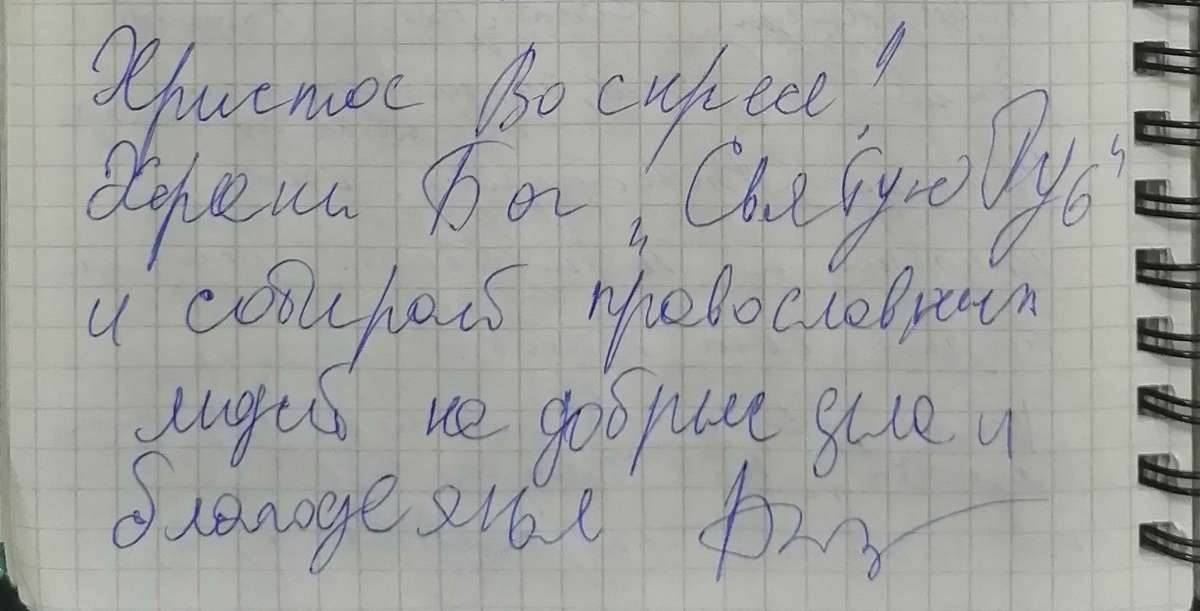 Христос Воскресе!
Храни Бог „Святую Русь"
и собирать православных
людей на добрые дела и
благодеянья